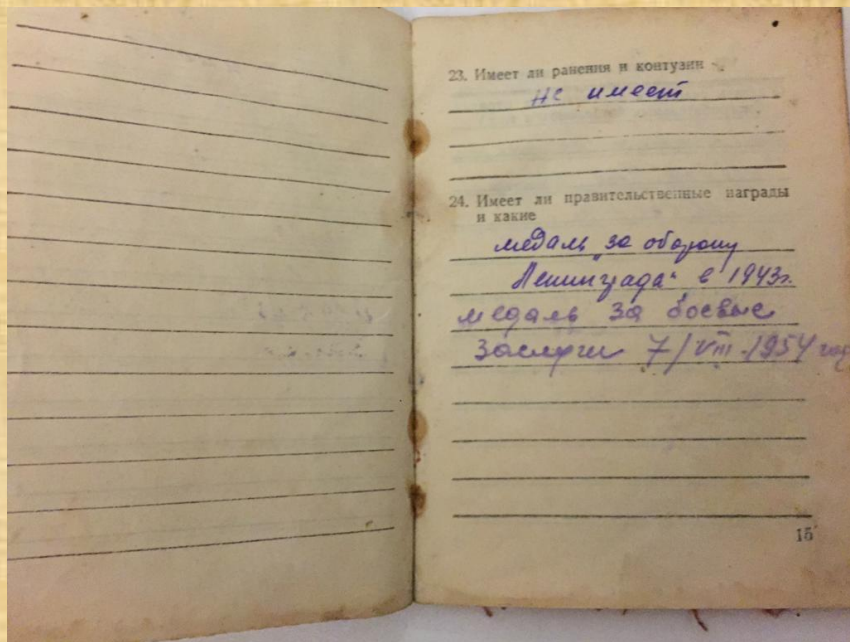 23. Имеет ли ранения и контузии
не имеет
24. Имеет ли правительственные награды
и какие
медаль „за оборону
Ленинграда“ в 1943г.
медаль за боевые
заслуги 7/VIII-1954 год
15